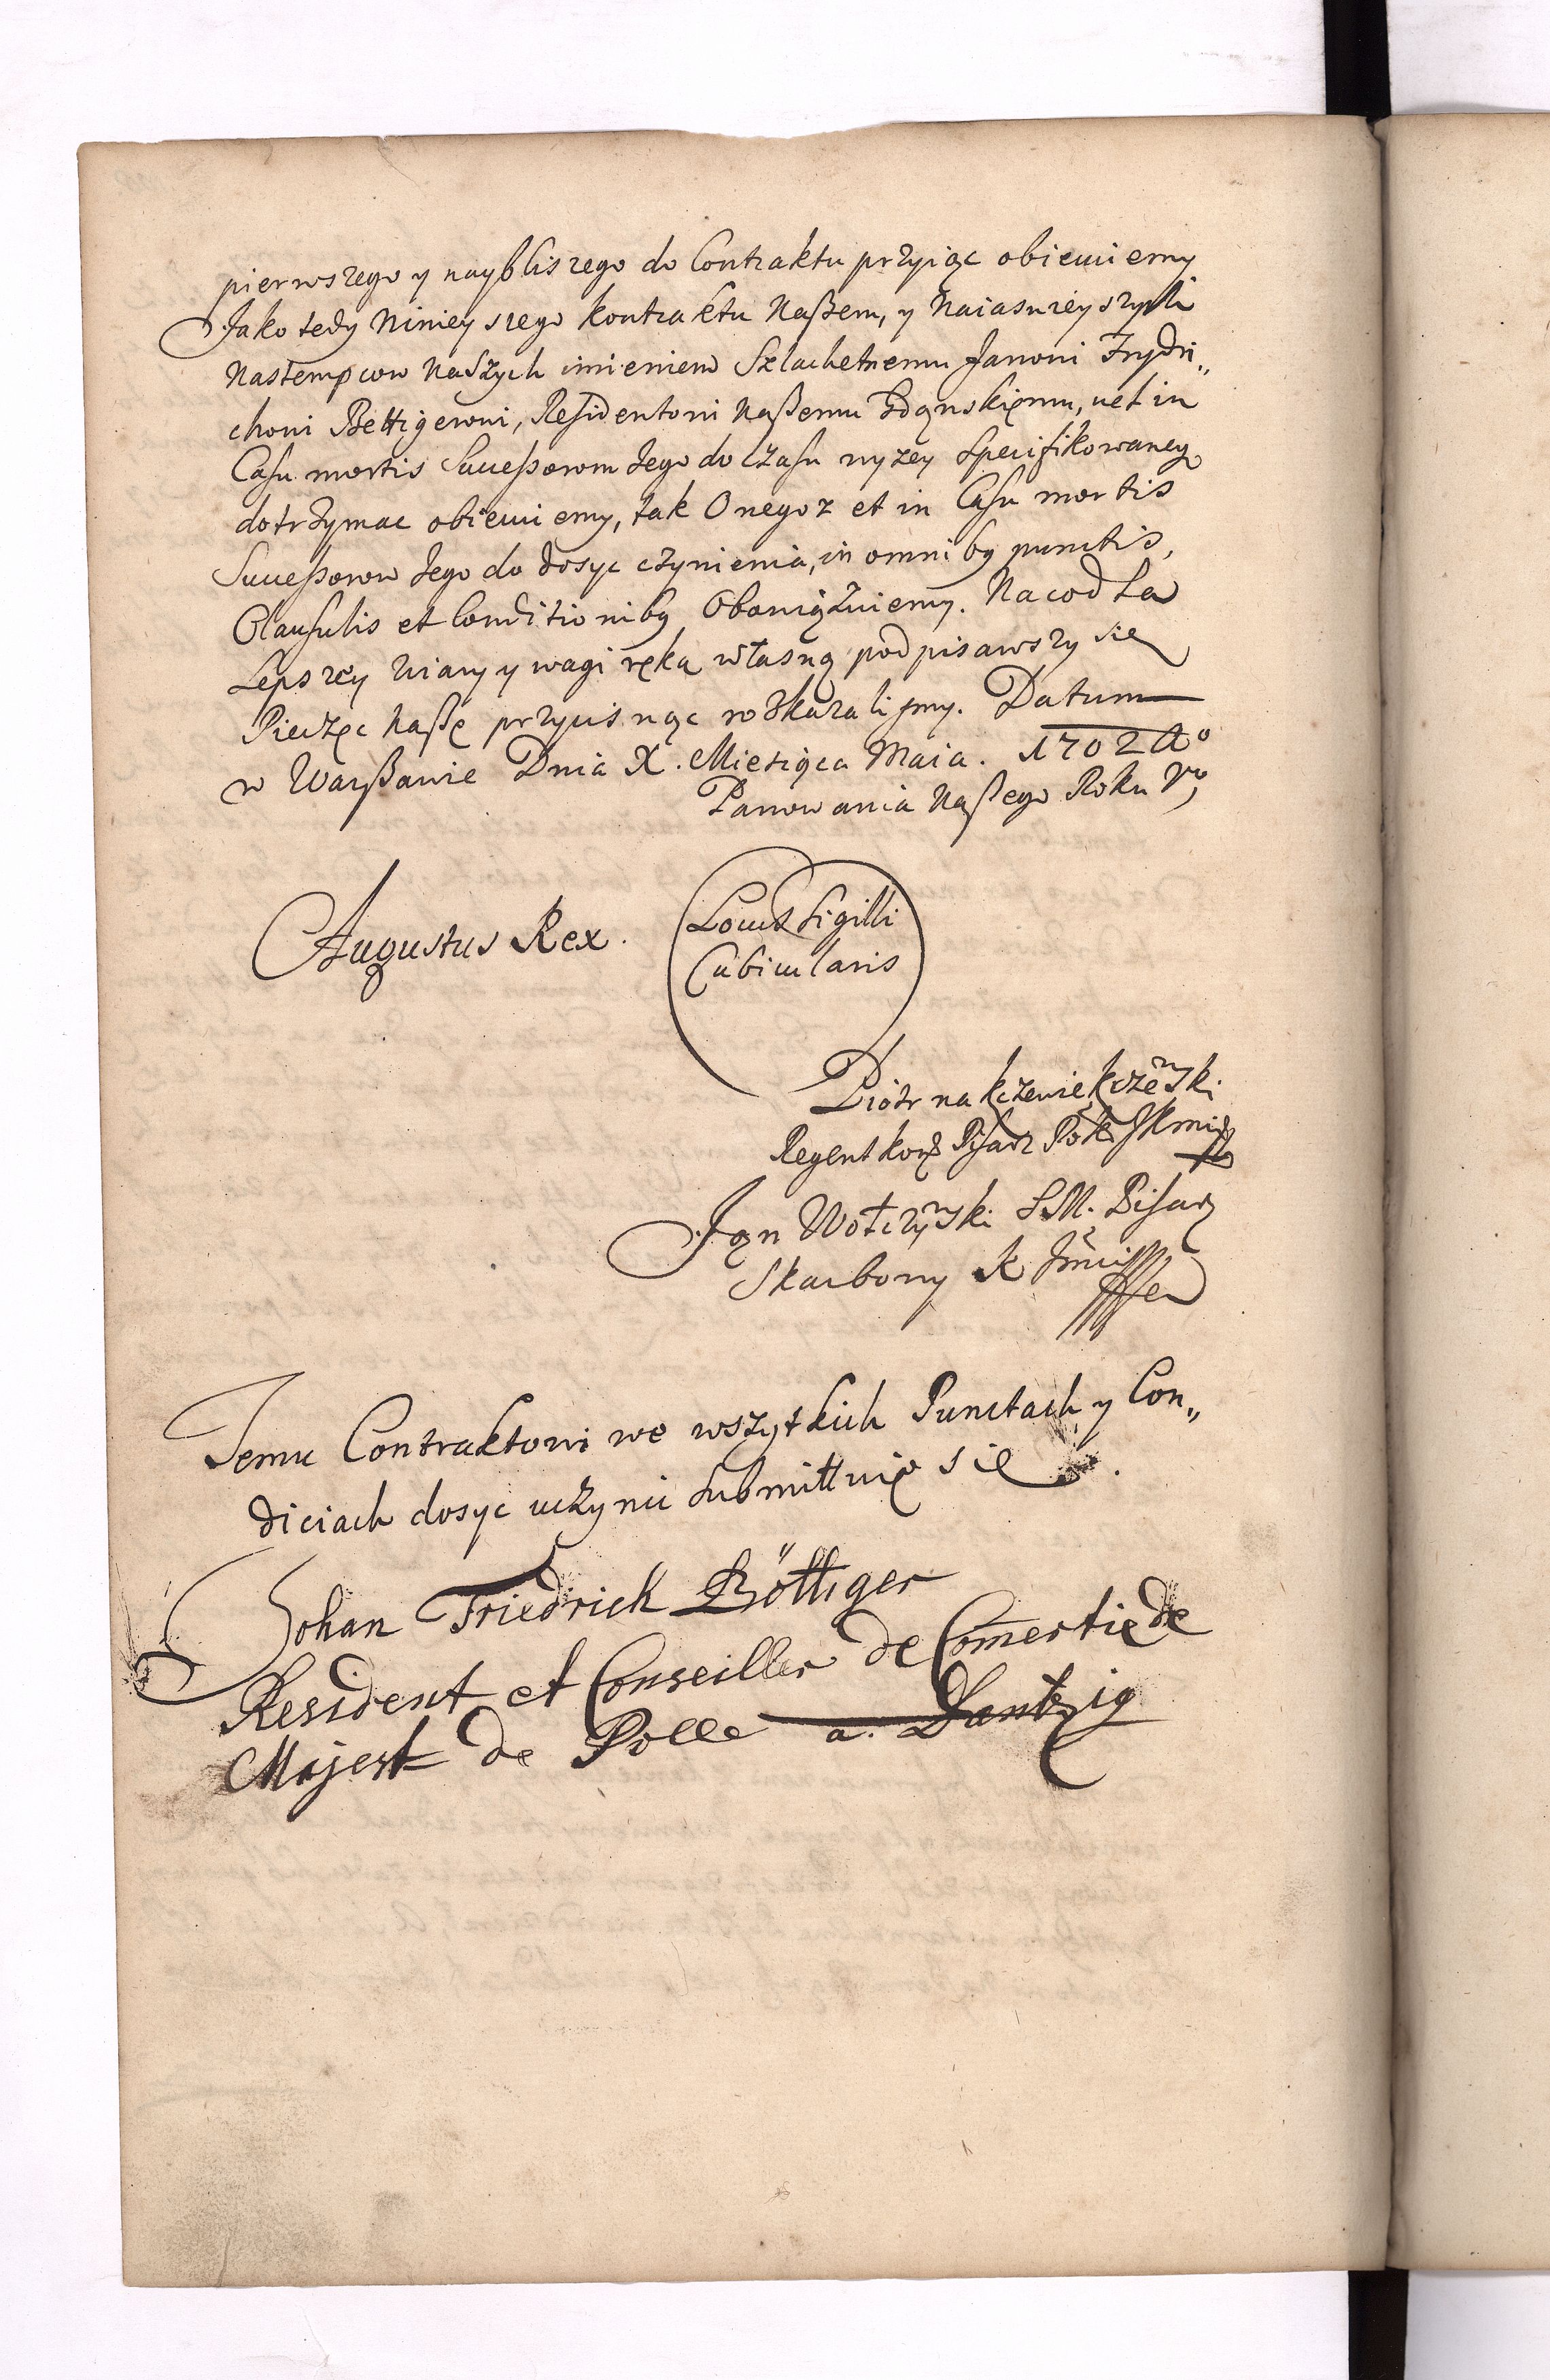 pierwszego y nayblisrego do Contraktu przyiąc obiecuiemy
Jako tedy Ninieyszego kontraktu Naßem, y Naiasnieyszych
Nastempcow Naszych imieniem Szlachetnemu Janowi Frydri„
chowi Bettigerowi, Residentowi Naßemu Gdanskiemu, vel in
Casu mortis Sucessorom Jego do Czasu wyzey Specifikowanego
dotrzymac obiecuiemy, tak Onegoz et in Casu mortis
Sucessorow Jego do dosyc czynienia, in omnibq punctis,
Clausulis et Conditionibq Obowiązuiemy. Na co dla
Lepszey Wiary y wagi ręką własną podpisawszy się
Pieczęc Naßę przycisnąc roskazalismy. Datum
w Warßawie Dnia X. Miesiąca Maia. 1702 Ao
Panowania Naßego Roku Vo
Augustus Rex.
Locus Sigilli
Cubicularis
Piotr na
Regent Pisarz
Jan Wołczynski S.M. Pisarz
Skarbowy
Temu Contraktowi we wszytkich Punctach y Con„
diciach dosyc uczynic submittuię się.
Johan Friedrich Böttiger
Resident et Conseiller de Comertie de
Majest de Polle a. Dantzig